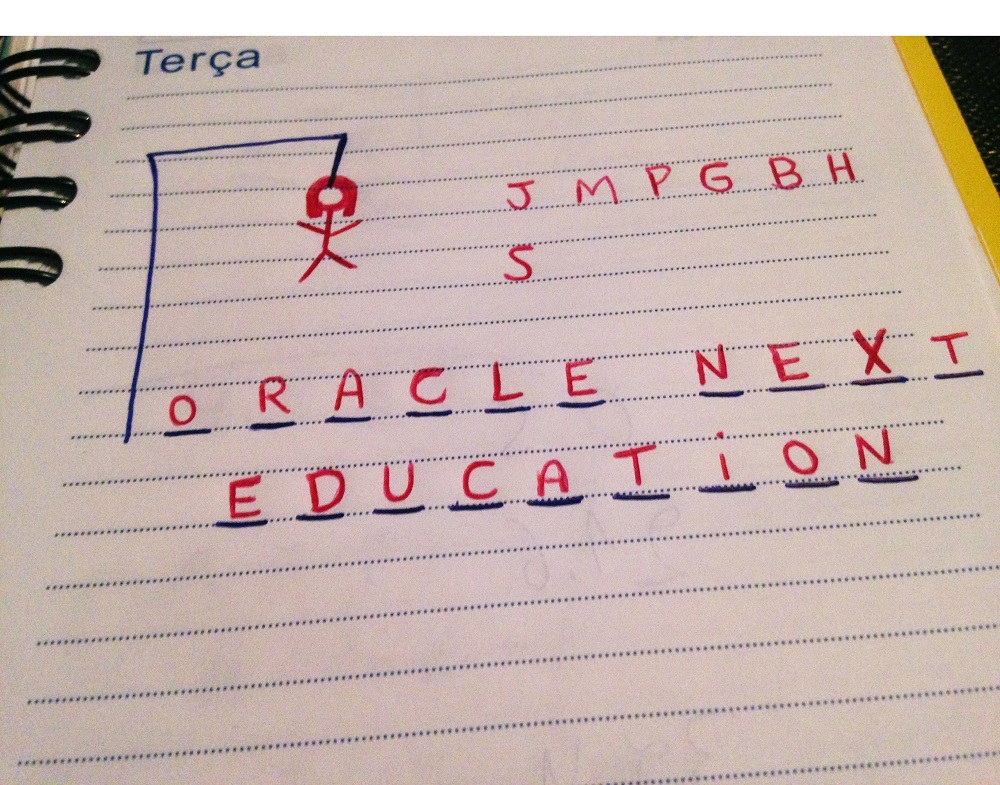 Terça
J M P G B H
S
ORACLE NEXT
EDUCATiON